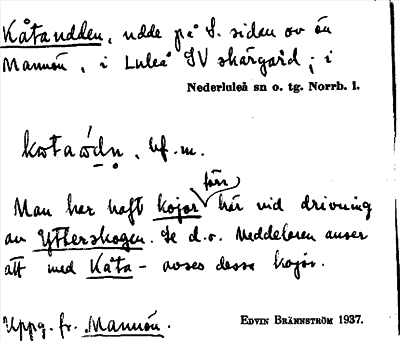 Kåtaudden, udde på S. sidan av ön
Mannön, i Luleå SV skärgård; i
Nederluleå sn o. tg. Norrb. l.
kωtaώdn̥, bf. m.
förr
Man har haft kojor här vid drivning
av Ytterskogen. Se d.o. Meddelaren anser
att med Kåta- avses dessa kojor.
Uppg. fr. Mannön.
EDVIN BRÄNNSTRÖM 1937.